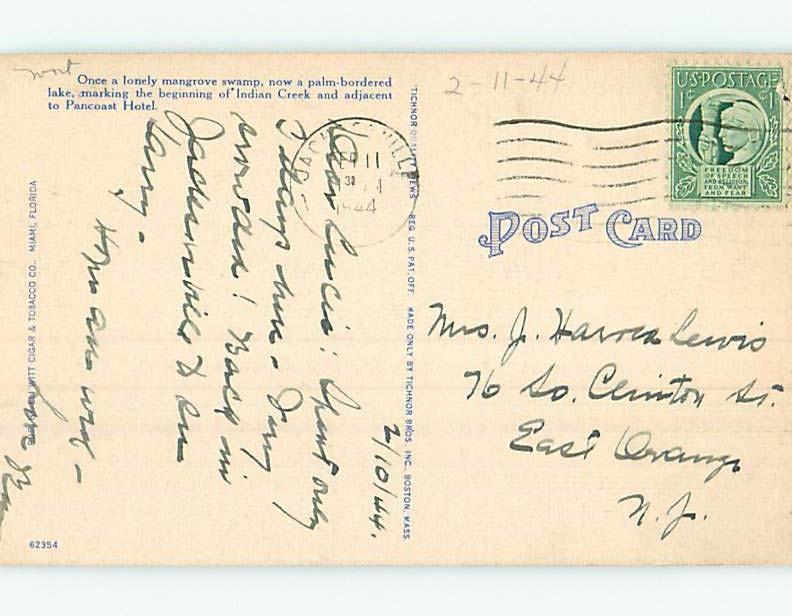 Once a lonely mangrove swamp, now a palm-bordered
lake, marking the beginning of Indian Creek and adjacent
to Pancoast Hotel.
2-11-44
U.S. POSTAGE
1¢ ¢1
FREEDOM
OF SPEECH
AND RELIGION,
FROM WANT
AND FEAR
JACKSONVILLE
11
1944
POST CARD
2/10/44.
Dear Lucia; Spent only
2 days here. Very
crowded! Back in
Jacksonville to see
Larry.
Hope all are well -
Mrs. J. Harris Lewis
76 So. Clinton St.
East Orange
N.J.
TICHNOR QUALITY VIEWS REG. U.S. PAT. OFF. MADE ONLY BY TICHNOR BROS. INC. BOSTON, MASS.
CIGAR & TOBACCO CO., MIAMI, FLORIDA
62354